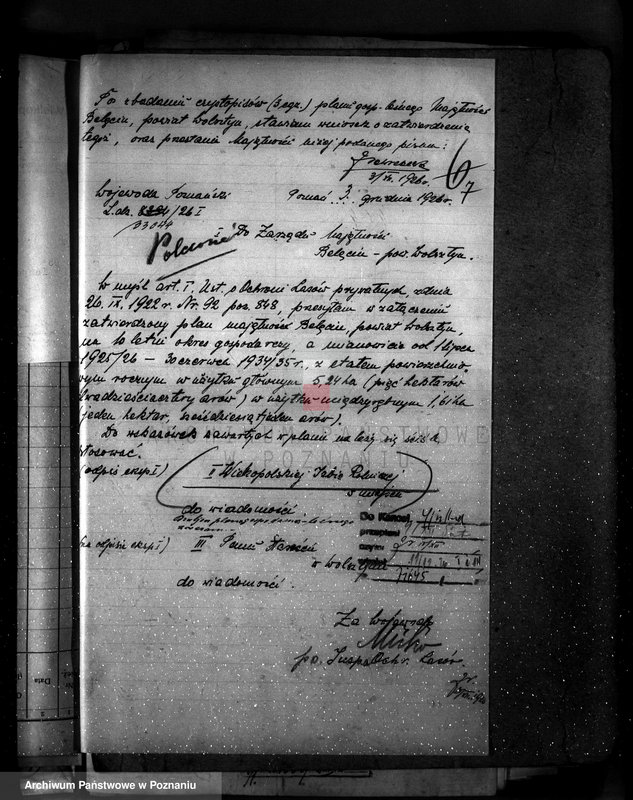 Po zbadaniu czystopisów (3 egz.) planu gosp. leśnego Majętności
Belęcin, powiat Wolsztyn, stawiam wniosek o zatwierdzenie
tegoż, oraz przesłanie Majętności niżej podanego pisma:
3/XII. 1926r.
6
7
Wojewoda Poznański
L.dz. /26 I
33044
Poznań 3. grudnia 1926r.
Polecone
I Do Zarządu Majętności
Belęcin - pow. Wolsztyn.
W myśl art. 1. Ust. o Ochronie Lasów prywatnych, z dnia
26. IX. 1922 r. Nr. 92 poz. 868, przesyłam w załączeniu
zatwierdzony plan majętności Belęcin, powiat Wolsztyn,
na 10 letni okres gospodarczy, a mianowicie od 1 lipca
1925/26 – 30 czerwca 1934/35 r., z etatem powierzchnio-
wym rocznym w użytku głównym 5,24 ha (pięć hektarów
dwadzieścia cztery arów) w użytku międzyrębnym 1,61 ha
(jeden hektar, sześćdziesiąt jeden arów)
Do wskazówek zawartych w planie należy się ściśle
stosować.
(odpis egzpl) II Wielkopolskiej Izbie Rolniczej
w miejscu
do wiadomości
Do Kancel.
przepisano
czytano
11/12
(na odpisie egzpl) III Panu Staroście
w Wolsztynie
do wiadomości.
Za Wojewodę
p.o. Insp. Ochr. Lasów.
ARCHIWUM PAŃSTWOWE
W POZNANIU
Data
Archiwum Państwowe w Poznaniu